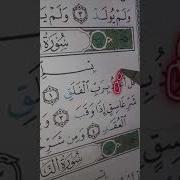 وَلَمْ يُولَدْ ٣ وَلَمْ
سُورَةُ
بِسْـ
بِرَبِّ ٱلْفَلَقِ ١
شَرِّ غَاسِقٍ إِذَا وَقَبَ ٣
ٱلْعُقَدِ ٤ وَمِن شَرِّ
سُورَةُ